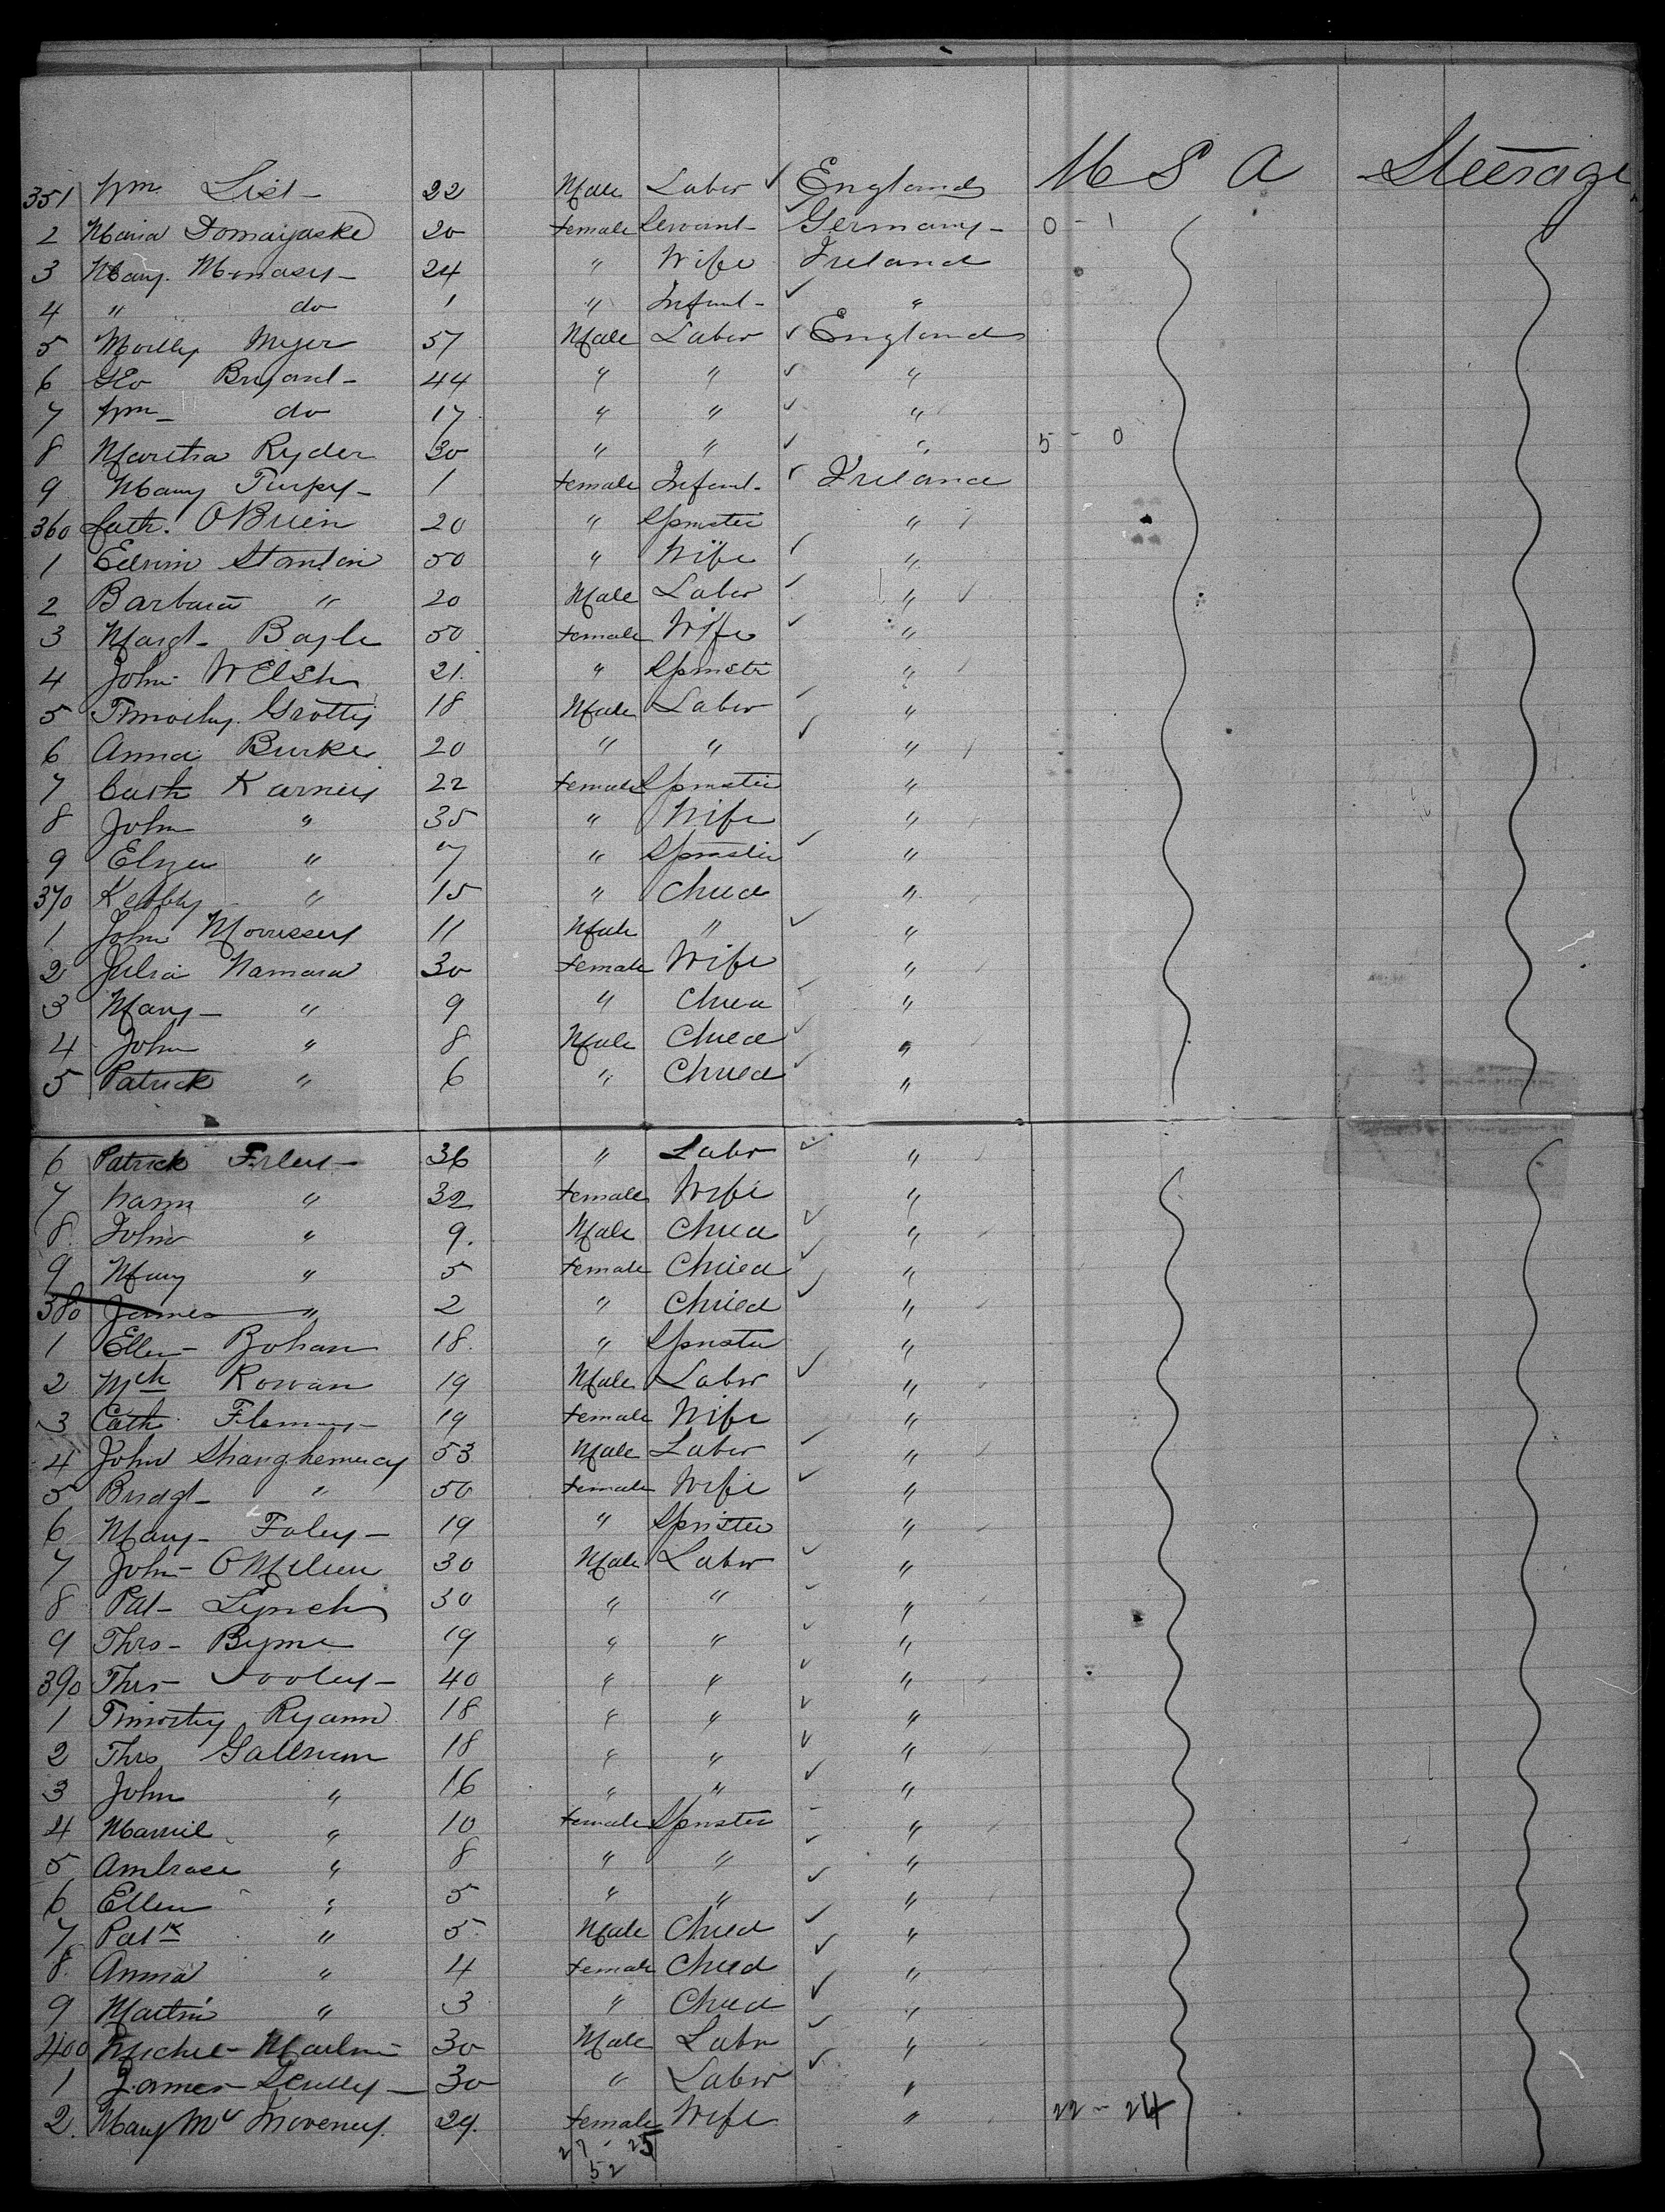 351 Wm. List 22 Male Labor ✓ England U S A Steerage
2 Maria Domayaske 20 Female Servant ✓ Germany 0 - 1
3 Mary 24 " Wife Ireland
4 " do 1 " Infant ✓ "
5 Myer 57 Male Labor ✓ England
6 Geo Bryant 44 " " ✓ "
7 Wm do 17 " " ✓ "
8 Martha Ryder 30 " " ✓ " 5 - 0
9 Mary 1 Female Infant ✓ Ireland
360 Cath. OBrien 20 " Spinster "
1 Stanton 50 " Wife ✓ "
2 Barbara " 20 Male Labor ✓ "
3 Margt Bayle 50 Female Wife ✓ "
4 John Welsh 21 " Spinster "
5 Timothy Grotty 18 Male Labor ✓ "
6 Anna Burke 20 " " ✓ "
7 Cath Karney 22 Female Spinster "
8 John " 35 " Wife "
9 Eliza " 7 " Spinster ✓ "
370 " 15 " Child "
1 John Morrissey 11 Male " ✓ "
2 Julia Namara 30 Female Wife "
3 Mary " 9 " Child ✓ "
4 John " 8 Male Child ✓ "
5 Patrick " 6 " Child ✓ "
6 Patrick 36 " Labor ✓ "
7 " 32 Female Wife "
8 John " 9 Male Child ✓ "
9 Mary " 5 Female Child ✓ "
380 James " 2 " Child ✓ "
1 Ellen Bohan 18 " Spinster "
2 Mch Rowan 19 Male Labor ✓ "
3 Cath Fleming 19 Female Wife "
4 John 53 Male Labor ✓ "
5 Bridgt " 50 Female Wife ✓ "
6 Mary Foley 19 " Spinster "
7 John 30 Male Labor ✓ "
8 Pat Lynch 30 " " ✓ "
9 Thos Byrne 19 " " ✓ "
390 Thos 40 " " ✓ "
1 Timothy Ryann 18 " " ✓ "
2 Thos 18 " " ✓ "
3 John " 16 " " ✓ "
4 " 10 Female Spinster "
5 Ambrose " 8 " " ✓ "
6 Ellen " 5 " " ✓ "
7 Patk " 5 Male Child ✓ "
8 Anna " 4 Female Child ✓ "
9 Martin " 3 " Child ✓ "
400 30 Male Labor ✓ "
1 James Scully 30 " Labor ✓ "
2. Mary Mc 24 Female Wife " 22 - 24
27 - 25
52